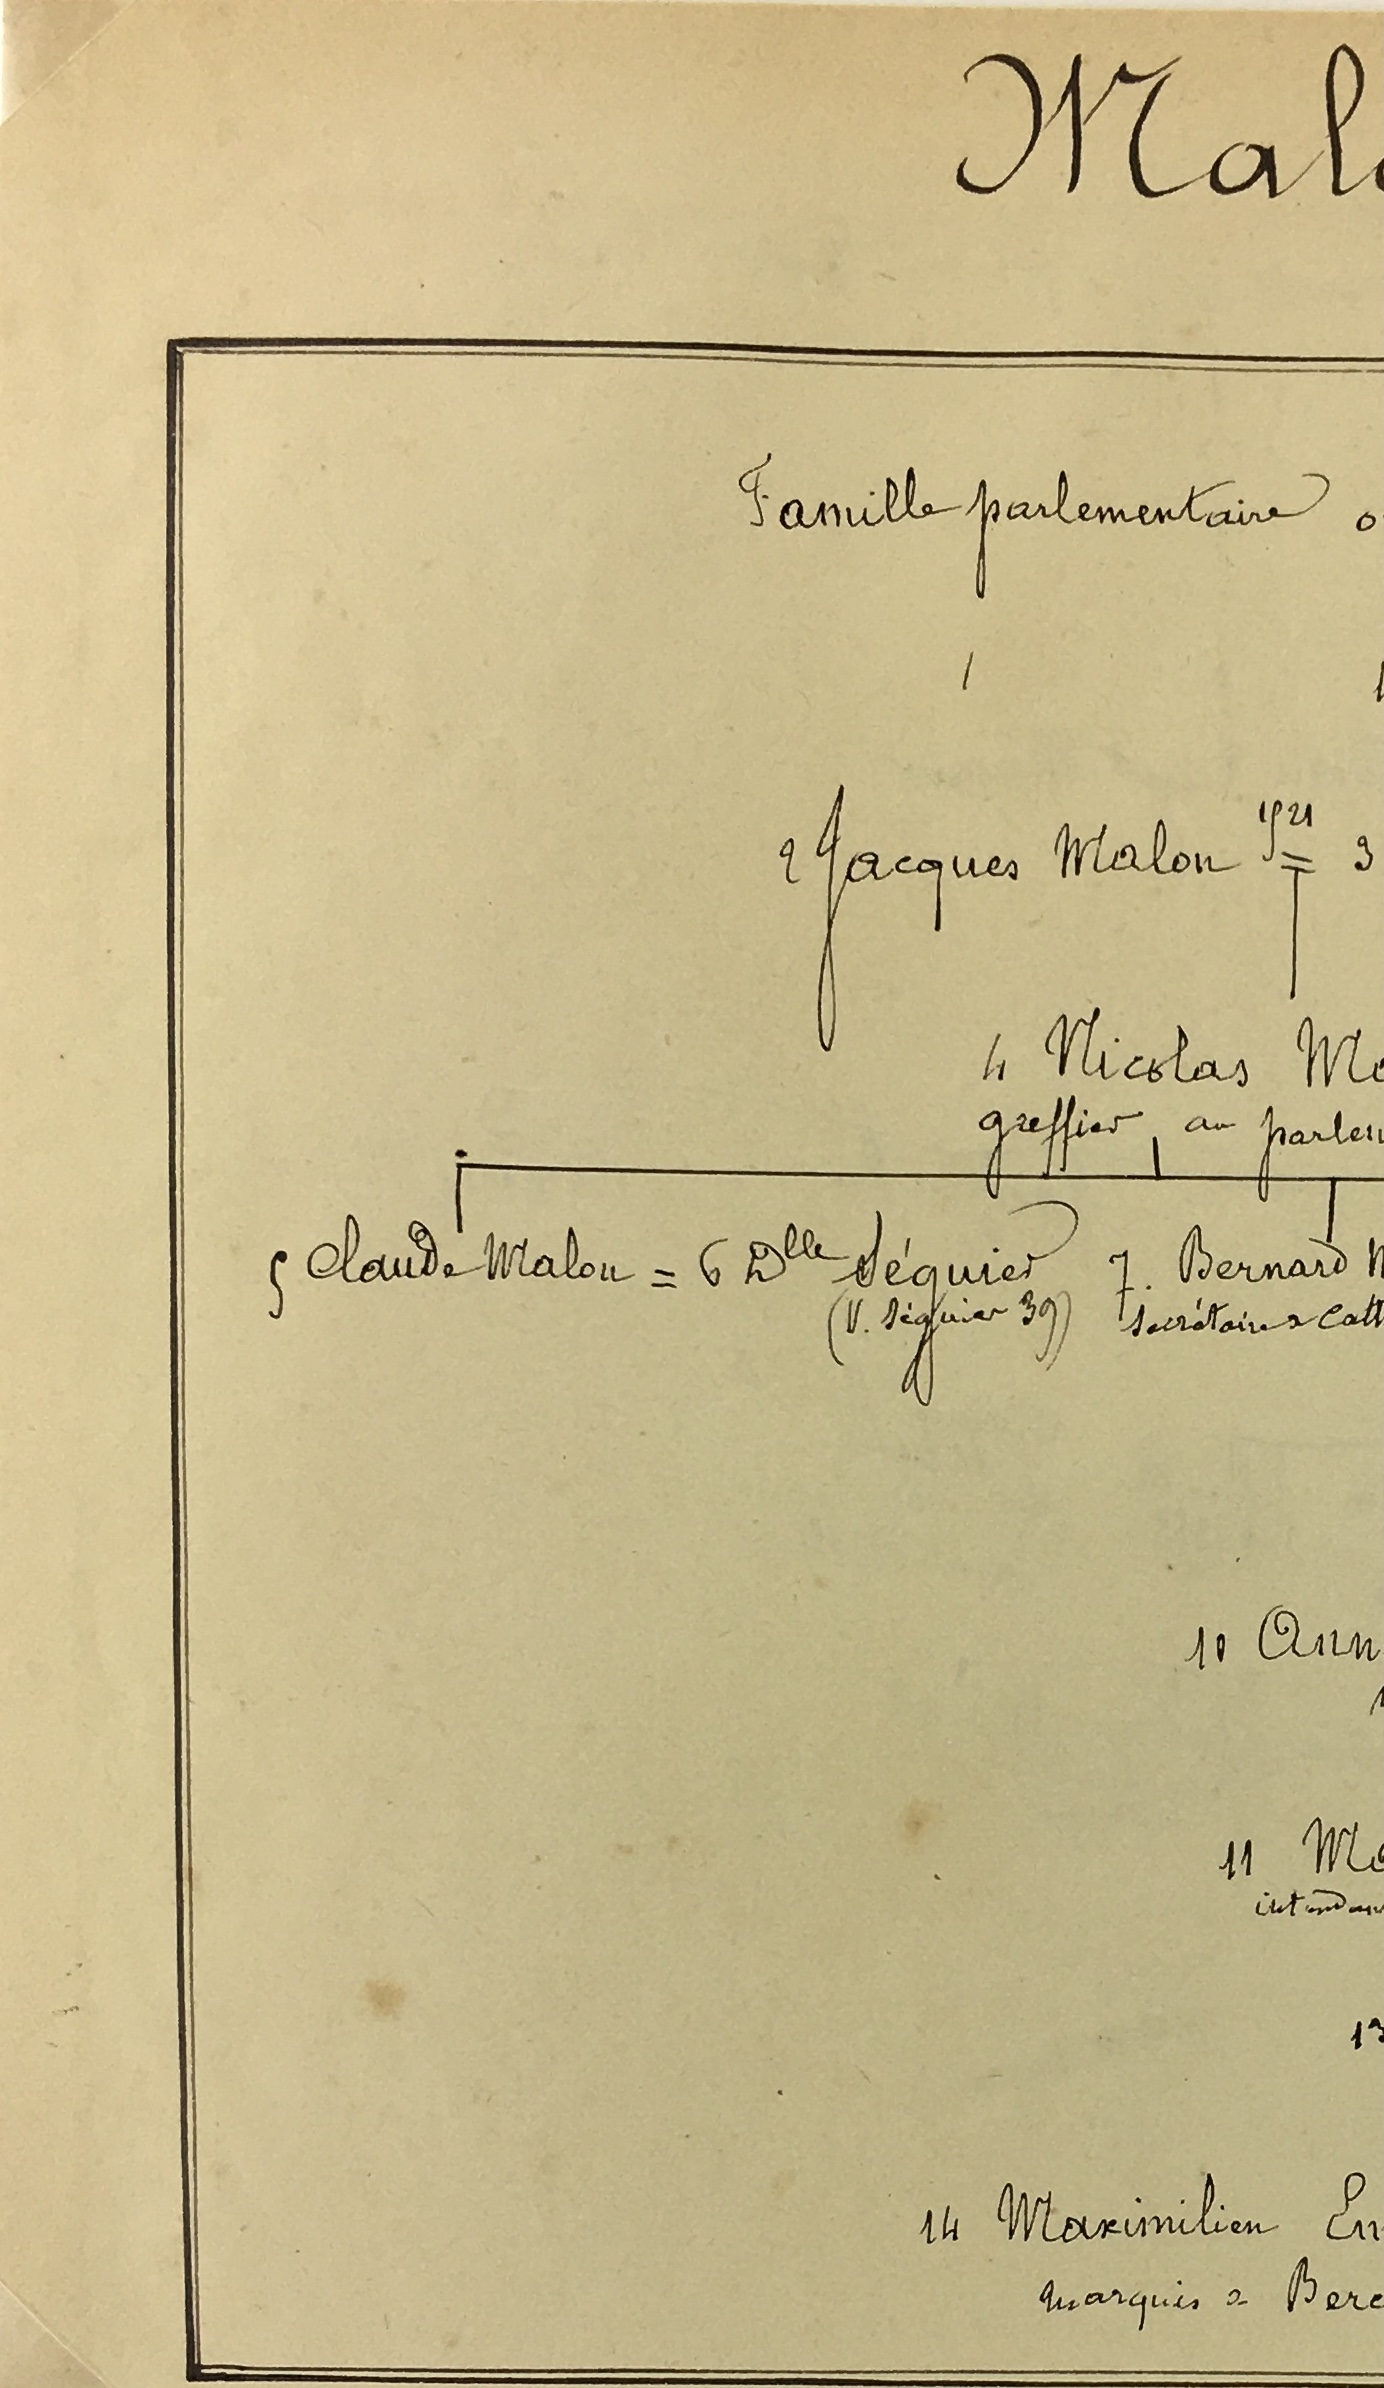 Malo
Famille parlementaire o
1
2 Jacques Malon 1521 = 3
4 Nicolas Ma
greffier au parlem
5 Claude Malon = 6 Dlle Séguier 7. Bernard M
(V. Séguier 39) secrétaire d Cath
10 Ann
11 Ma
intendan
13
14 Maximilien Em
marquis d Berc